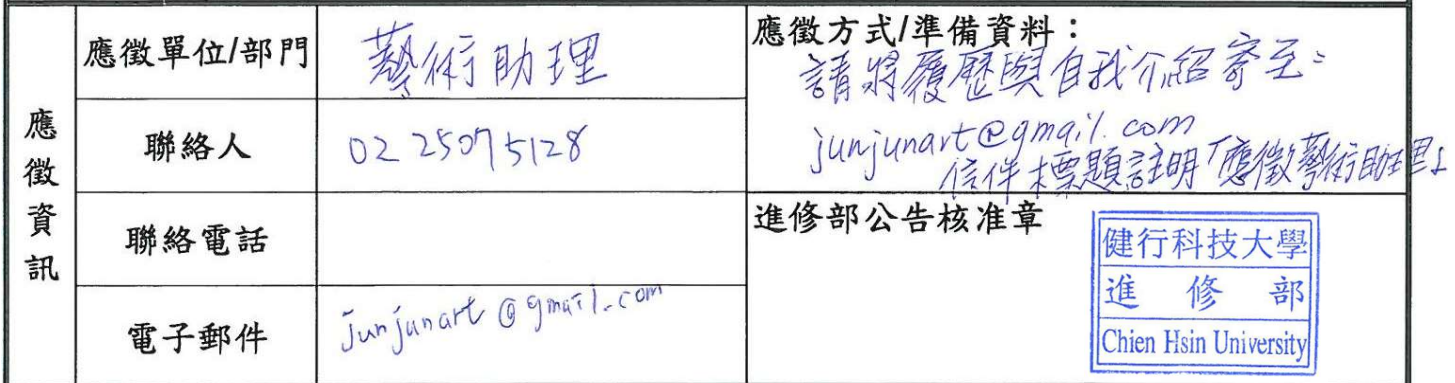 應徵資訊
應徵單位/部門
藝術助理
聯絡人
02 25075128
聯絡電話
電子郵件
junjunart@gmail.com
應徵方式/準備資料：
請將履歷與自我介紹寄至：
junjunart@gmail.com
信件標題註明「應徵藝術助理」
進修部公告核准章
健行科技大學
進修部
Chien Hsin University